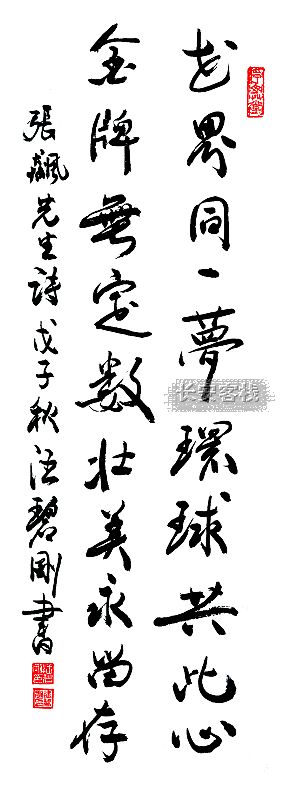 世界同一夢環球共此心
金牌無定數壯美永留存
張飆先生詩戊子秋汪碧剛書
长安客栈